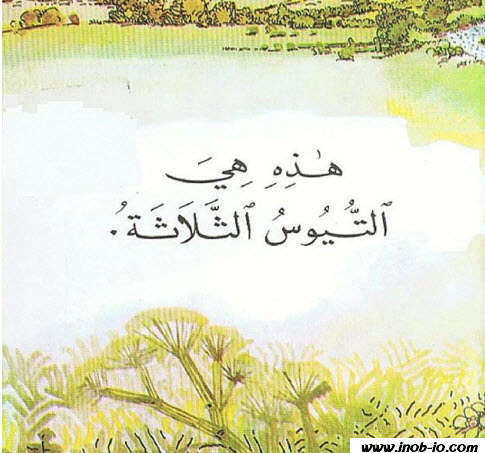 هٰذِهِ هِيَ
ٱلتُّيُوسُ ٱلثَّلَاثَةُ.
www.inob-io.com